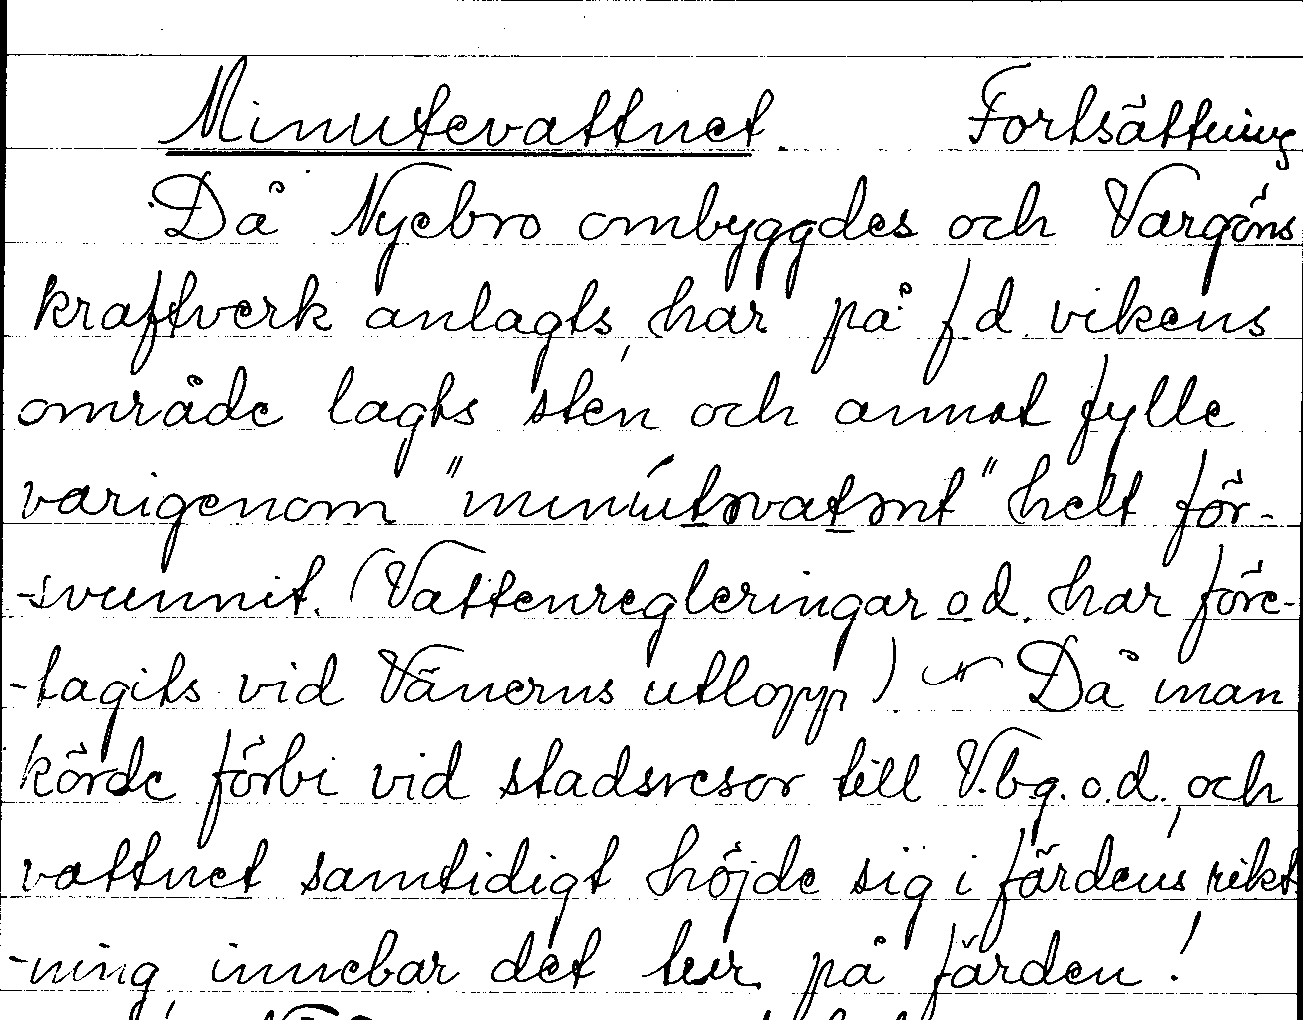 Minutevattnet. Fortsättning
Då Nyebro ombyggdes och Vargöns
kraftverk anlagts, har på f.d. vikens
område lagts sten och annat fylle
varigenom "minutəvatənt" helt för-
-svunnit. (Vattenregleringar o.d. har före-
-tagits vid Vänerns utlopp). Då man
körde förbi vid stadsresor till V.bg. o.d., och
vattnet samtidigt höjde sig i färdens rikt
-ning, innebar det tur på färden!